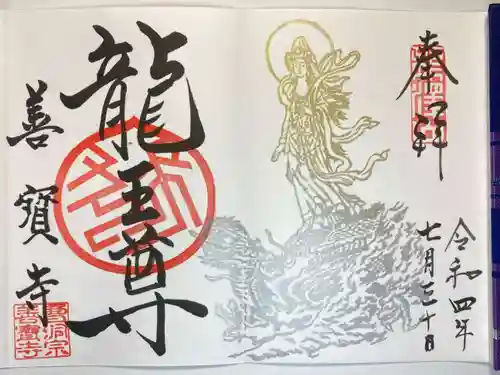 奉拝
令和四年
七月三十日
龍王尊
善寳寺
曹洞宗
善寳寺